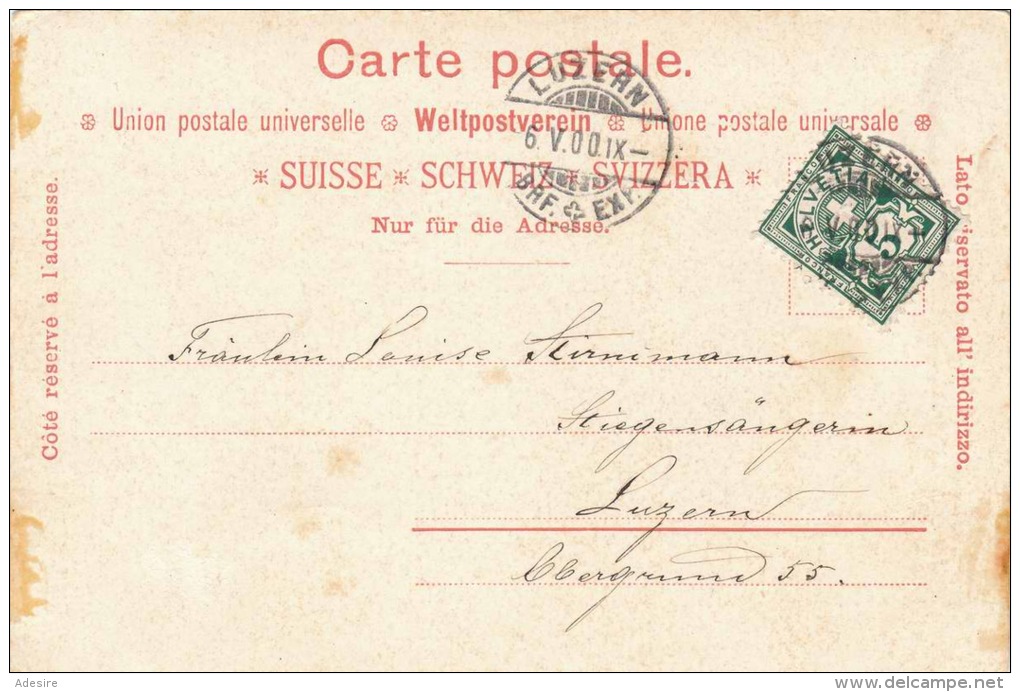 Carte postale.
Union postale universelle Weltpostverein Unione postale universale
* SUISSE * SCHWEIZ * SVIZZERA *
Nur für die Adresse.
Côté réservé à l'adresse.
Lato riservato all' indirizzo.
LUZERN
6.V.00.IX—
BHF. EXP.
HELVETIA
FRANCO
5
Fräulein Louise Stirnimann
Stiegensängerin
Luzern
Obergrund 55.
Adesire
www.delcampe.net